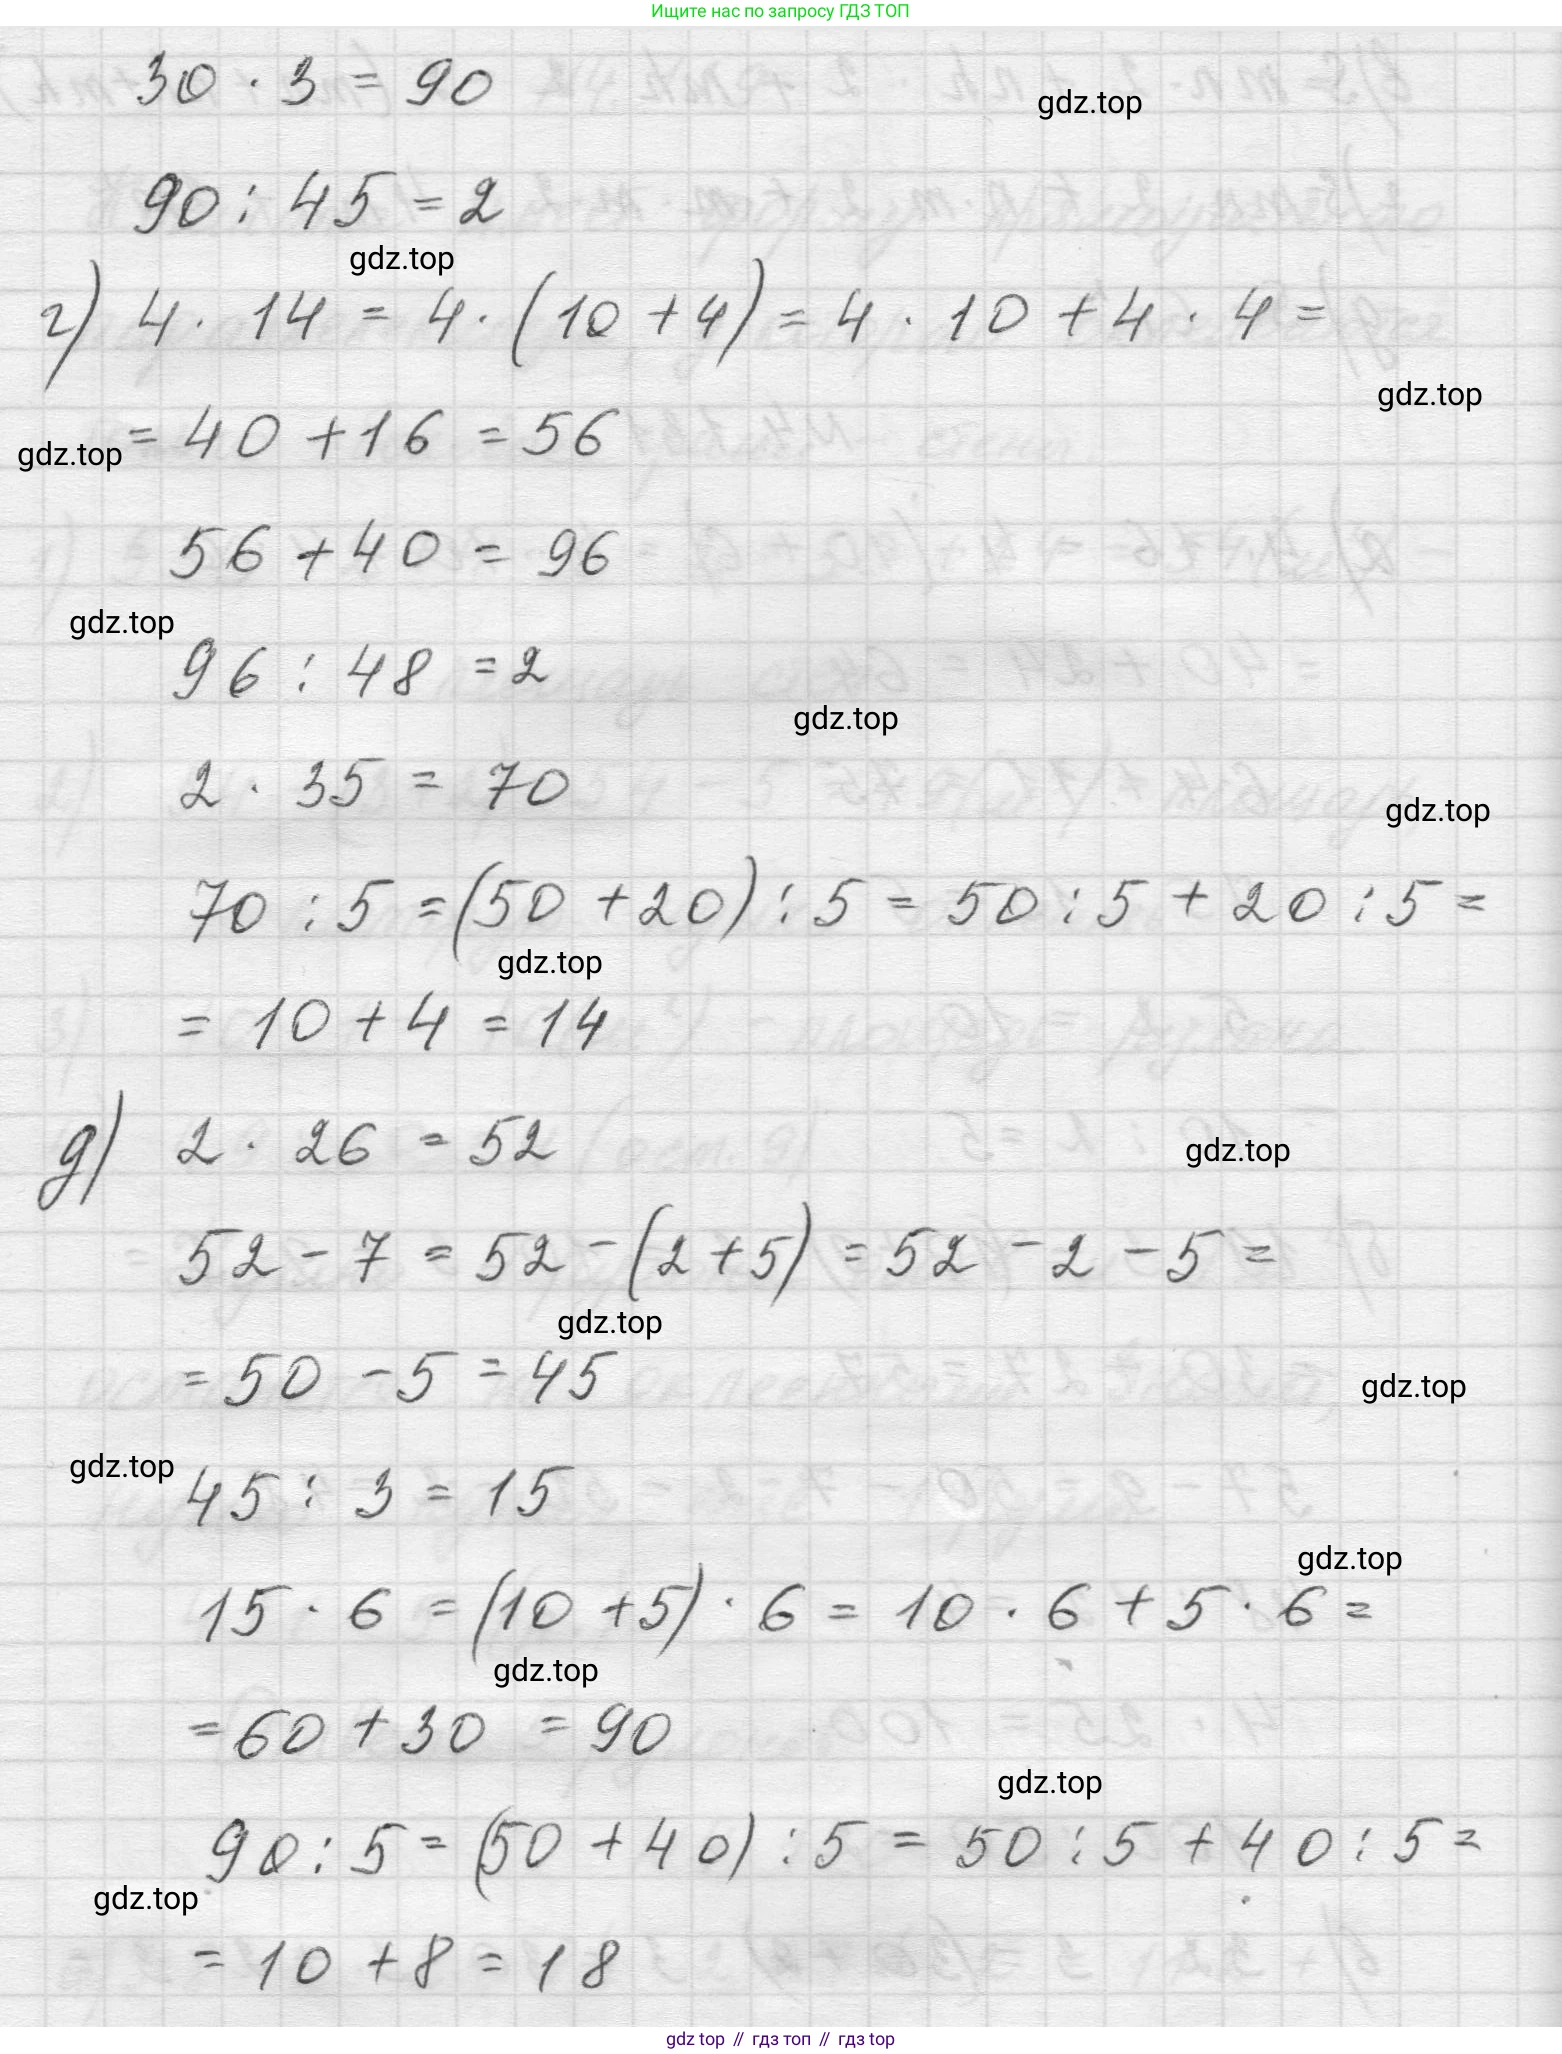 Ищите нас по запросу ГДЗ ТОП
30 · 3 = 90
gdz.top
90 : 45 = 2
gdz.top
г) 4 · 14 = 4 · (10 + 4) = 4 · 10 + 4 · 4 =
gdz.top
= 40 + 16 = 56
gdz.top
56 + 40 = 96
gdz.top
96 : 48 = 2
gdz.top
2 · 35 = 70
gdz.top
70 : 5 = (50 + 20) : 5 = 50 : 5 + 20 : 5 =
gdz.top
= 10 + 4 = 14
д) 2 · 26 = 52
gdz.top
52 - 7 = 52 - (2 + 5) = 52 - 2 - 5 =
gdz.top
= 50 - 5 = 45
gdz.top
gdz.top
45 : 3 = 15
gdz.top
15 · 6 = (10 + 5) · 6 = 10 · 6 + 5 · 6 =
gdz.top
= 60 + 30 = 90
gdz.top
90 : 5 = (50 + 40) : 5 = 50 : 5 + 40 : 5 =
gdz.top
= 10 + 8 = 18
gdz top // гдз топ // гдз top